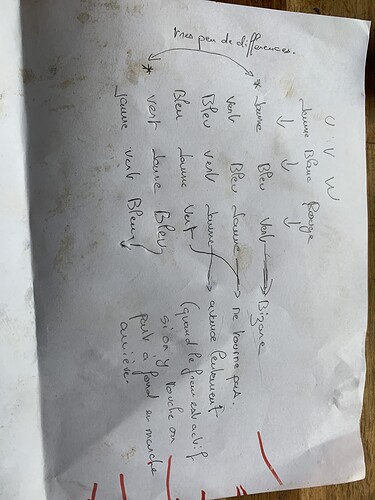 U V W
Jaune Blanc Rouge
↓ ↓ ↓
* Jaune Bleu Vert → Bizarre
Vert Bleu Jaune → ne tourne pas.
Bleu Vert Jaune → avance lentement
Bleu Jaune Vert (quand le frein est actif
* Vert Jaune Bleu si on y touche on
Jaune Vert Bleu part a fond en marche
arrière.
Tres peu de differences.